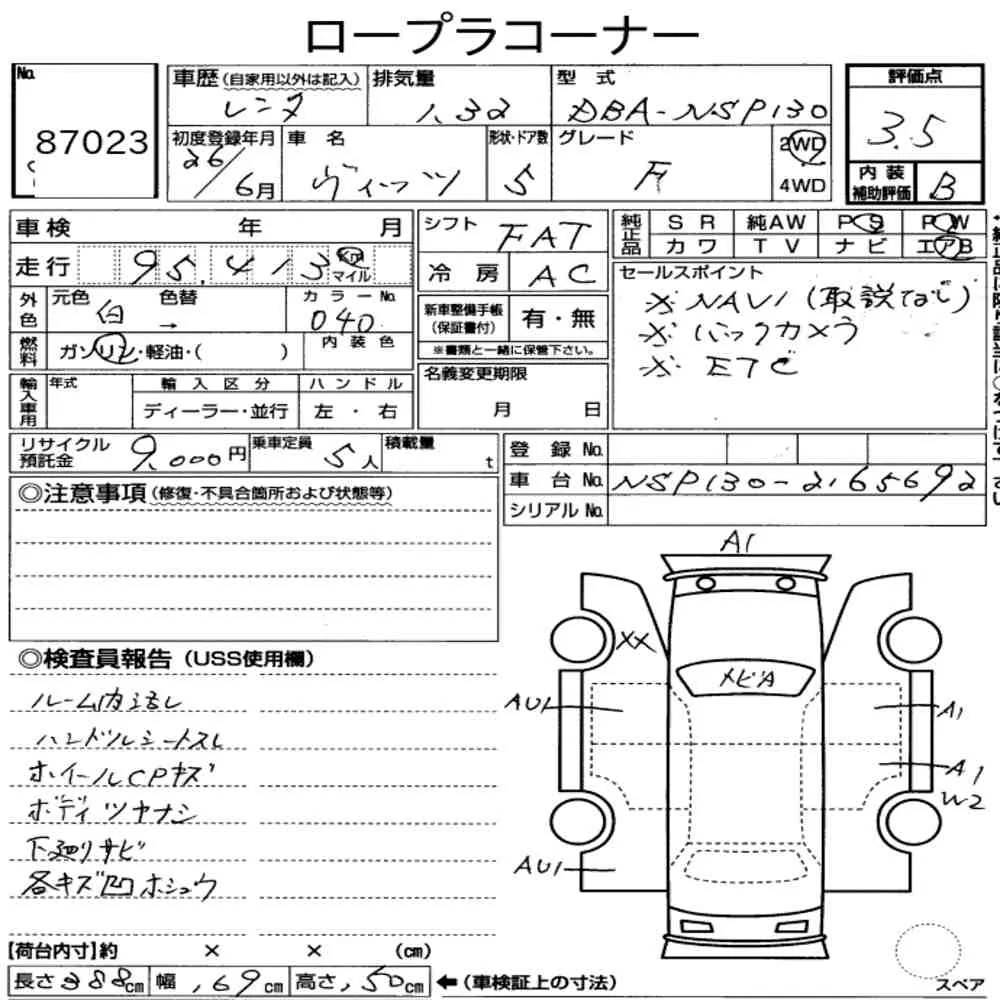 ロープラコーナー
No.
87023
車歴(自家用以外は記入)
レンタ
排気量
1.32
型式
DBA-NSP130
初度登録年月
26/6月
車名
ヴィッツ
形状・ドア数
5
グレード
F
2WD
4WD
評価点
3.5
内装
補助評価
B
車検 年 月
走行 95,413 Km
マイル
外色
元色 白 色替 →
カラーNo.
040
燃料
ガソリン・軽油・( )
内装色
輸入車用
年式
輸入区分
ディーラー・並行
ハンドル
左・右
シフト FAT
冷房 AC
新車整備手帳
(保証書付)
有・無
※書類と一緒に保管下さい。
名義変更期限
月 日
純正品
SR 純AW PS PW
カワ TV ナビ エアB
セールスポイント
※ NAVI (取説なし)
※ バックカメラ
※ ETC
リサイクル
預託金
9,000円
乗車定員 5人
積載量 t
登録No.
車台No. NSP130-2165692
シリアルNo.
◎注意事項(修復・不具合箇所および状態等)
◎検査員報告(USS使用欄)
ルーム内汚レ
ハンドルシートスレ
ホイールCPキズ
ボディツヤナシ
下廻リサビ
各キズ凹ホシュウ
A1
XX
トビA
AU1
A1
A1
W2
AU1
スペア
【荷台内寸】約 × × (cm)
長さ388cm 幅169cm 高さ150cm ←(車検証上の寸法)